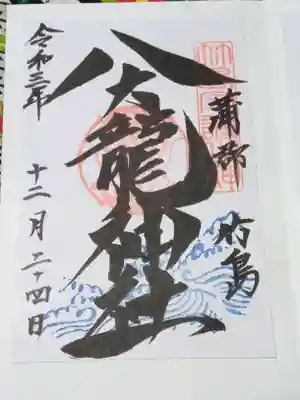 蒲郡 竹島
八大龍神社
令和三年
十二月二十四日